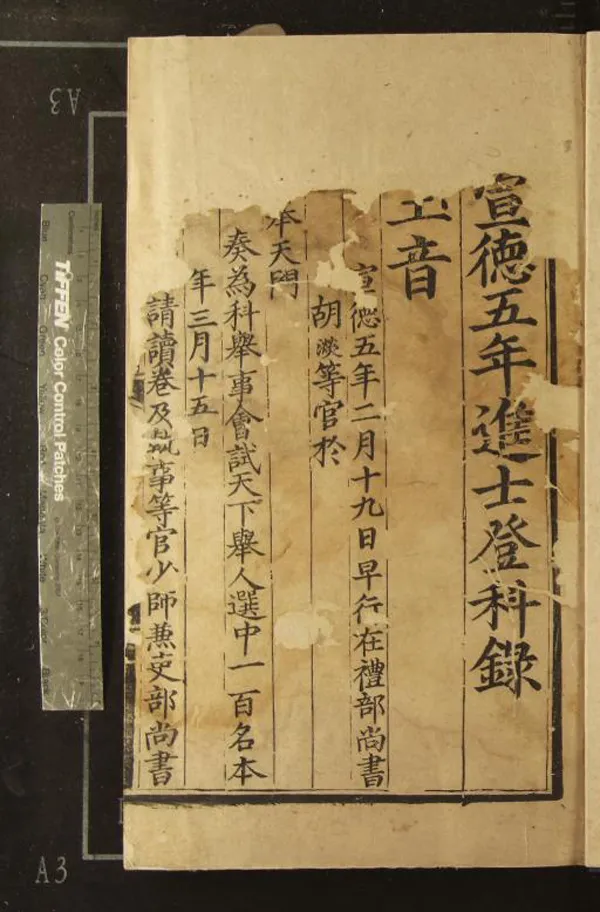 宣德五年進士登科錄
玉音
宣德五年二月十九日早行在禮部尚書
胡濙等官於
奉天門
奏為科舉事會試天下舉人選中一百名本
年三月十五日
請讀卷及執事等官少師兼吏部尚書
TIFFEN Color Control Patches
A3
A3